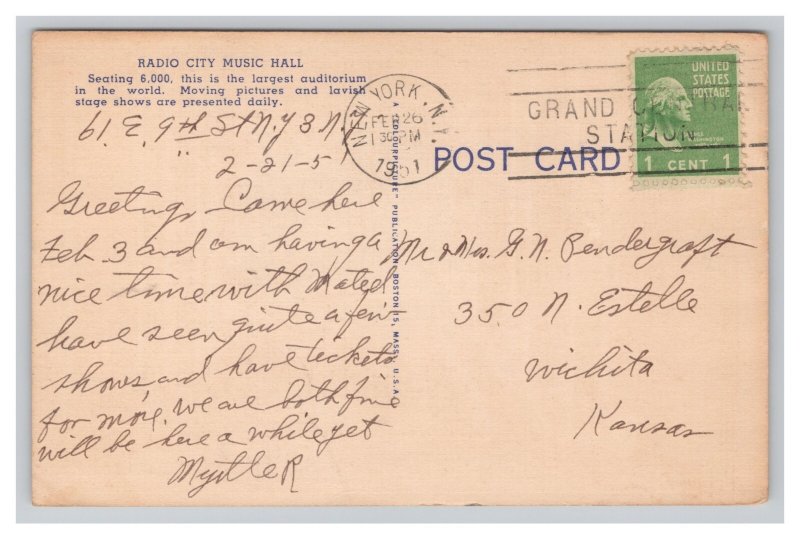 RADIO CITY MUSIC HALL
Seating 6,000, this is the largest auditorium
in the world. Moving pictures and lavish
stage shows are presented daily.
61 E. 9th St N.Y 3 N.Y
2-21-51
Greetings Came here
Feb 3 and am having a
nice time with
have seen quite a few
shows and have tickets
for more. we are both fine
will be here a while yet
Myrtle R
A "COLOURPICTURE" PUBLICATION, BOSTON 15, MASS., U.S.A.
NEW YORK, N.Y.
FEB 26
1 30 PM
1951
GRAND CENTRAL
STATION
UNITED
STATES
POSTAGE
WASHINGTON
1 CENT 1
POST CARD
Mr & Mrs. G. N. Pendergraft
350 N. Estelle
Wichita
Kansas